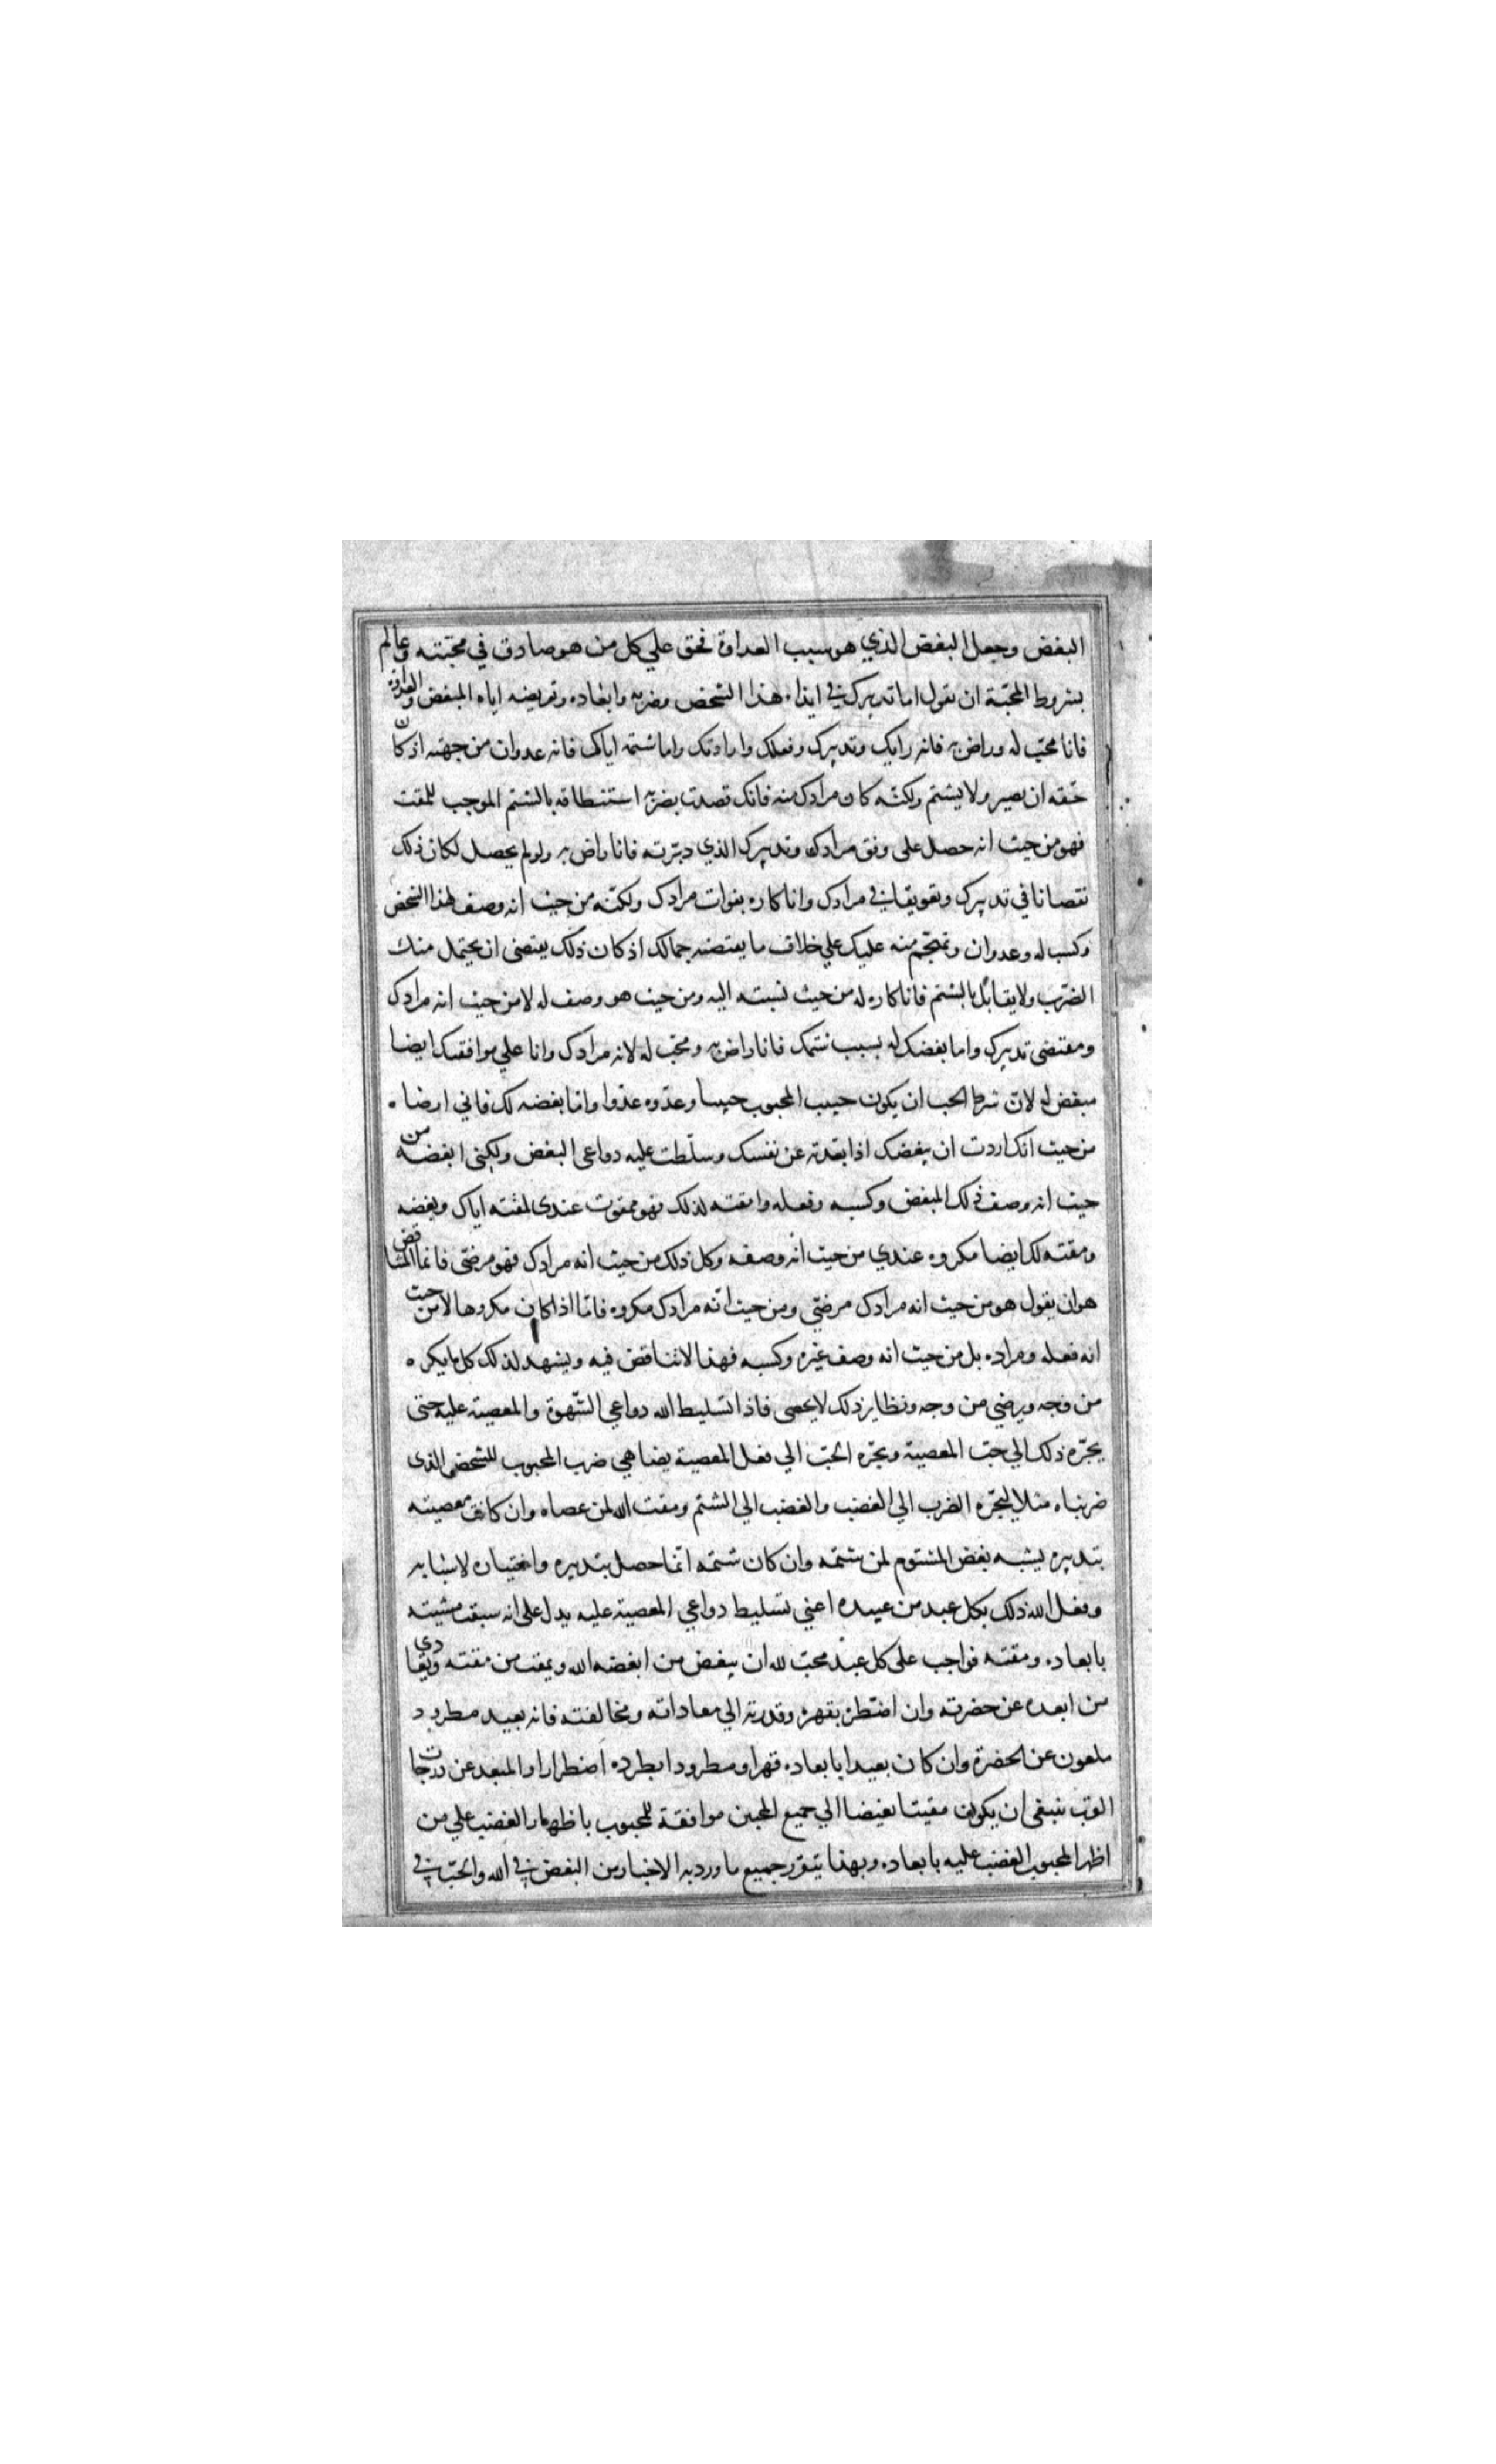 البغض وجعل البغض الذي هو سبب العداوة فحق علي كل من هو صادق في محبته وعالم
بشروط المحبّة ان يقول اما تدبيرك في ايذاء هذا الشخص وضربه وابعاده وتعريضه اياه للبغض والعداوة
فانا محبّ له وراض به فانه رايك وتدبيرك وفعلك وارادتك واما شتمه اياك فانه عدوان من جهته اذ كان
حقه ان يصبر ولا يشتم ولكنّه كان مرادك منه فانك قصدت بضربه استنطاقه بالشتم الموجب للمقت
فهو من حيث انه حصل على وفق مرادك وتدبيرك الذي دبّرته فانا راض به ولو لم يحصل لكان ذلك
نقصانا في تدبيرك وتعويقا في مرادك وانا كاره بفوات مرادك ولكنّه من حيث انه وصف لهذا الشخص
وكسب له وعدوان وتهجّم منه عليك علي خلاف ما يقتضيه جمالك اذ كان ذلك يقتضى ان يحتمل منك
الضرب ولا يقابل بالشتم فانا كاره له من حيث نسبته اليه ومن حيث هو وصف له لا من حيث انه مرادك
ومقتضى تدبيرك واما بغضك له بسبب شتمك فانا راض به ومحبّ له لانه مرادك وانا علي موافقتك ايضا
مبغض له لانّ شرط الحب ان يكون حبيب المحبوب حبيبا وعدّوه عدّوا واما بغضه لك فاني ارضاه
من حيث انك اردت ان يبغضك اذا بعدته عن نفسك وسلّطت عليه دواعى البغض ولكنى ابغضه من
حيث انه وصف ذلك المبغض وكسبه وفعله وامقته لذلك فهو ممقوت عندى لمقته اياك وبغضه
ومقته لك ايضا مكروه عندي من حيث انه وصفه وكل ذلك من حيث انه مرادك فهو مرضىّ فانما المتناقض
هو ان يقول هو من حيث انه مرادك مرضيّ ومن حيث انّه مرادك مكروه فامّا اذا كان مكروها لا من حيث
انه فعله ومراده بل من حيث انه وصف غيره وكسبه فهذا لا تناقض فيه ويشهد لذلك كل ما يكره
من وجه ويرضي من وجه ونظاير ذلك لا يحصى فاذا تسليط الله دواعي الشّهوة والمعصية عليه حتى
يجرّه ذلك الي حبّ المعصية ويجرّه الحبّ الي فعل المعصية يضاهي ضرب المحبوب للشخص الذى
ضربناه مثلا ليجرّه الضرب الي الغضب والغضب الي الشتم ومقت الله لمن عصاه وان كانت معصيته
بتدبيره يشبه بغض المشتوم لمن شتمه وان كان شتمه انّما حصل بتدبيره واختياره لاسبابه
وفعل الله ذلك بكل عبد من عبيده اعني تسليط دواعي المعصية عليه يدل على انه سبقت مشيته
بابعاده ومقته فواجب على كل عبد محبّ لله ان يبغض من ابغضه الله ويمقت من مقته ويعادي
من ابعده عن حضرته وان اضطره بقهره وقدرته الي معاداته ومخالفته فانه بعيد مطرود
ملعون عن الحضرة وان كان بعيدا بابعاده قهرا ومطرودا بطرده اضطرارا والمبعد عن درجات
القرب ينبغى ان يكون مقيتا بغيضا الي جميع المحبين موافقة للمحبوب باظهار الغضب علي من
اظهر المحبوب الغضب عليه بابعاده وبهذا يتقرر جميع ما ورد به الاخبار من البغض في الله والحبّ في